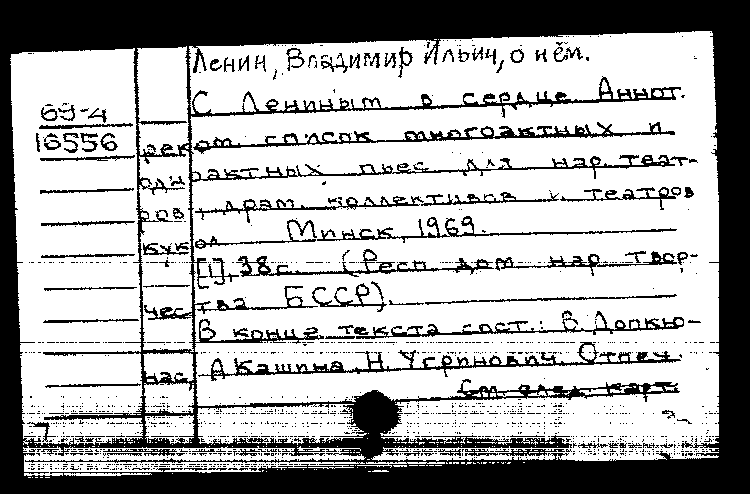 Ленин, Владимир Ильич, о нём.
69-4
16556
С Лениным в сердце Аннот.
реком список многоактных и
одноактных пьес для нар. театров
, драм. коллективов и театров
кукол Минск, 1969.
[1], 38 с. (Респ. дом нар. творчества
БССР).
В конце текста сост.: В. Допкюнас,
А Кашина, Н. Угринович. Отпеч.
См. след. карт.